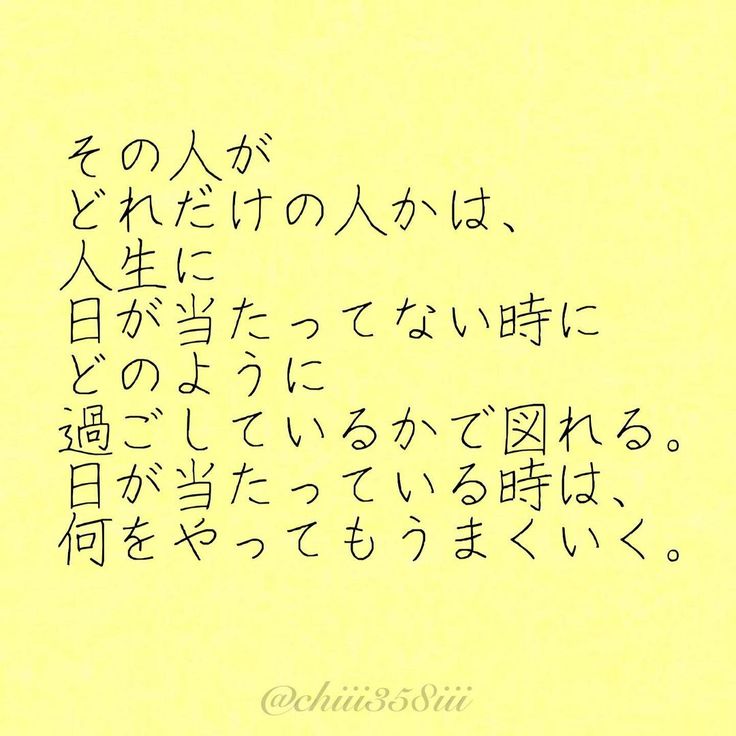 その人が
どれだけの人かは、
人生に
日が当たってない時に
どのように
過ごしているかで図れる。
日が当たっている時は、
何をやってもうまくいく。
@chiii358iii